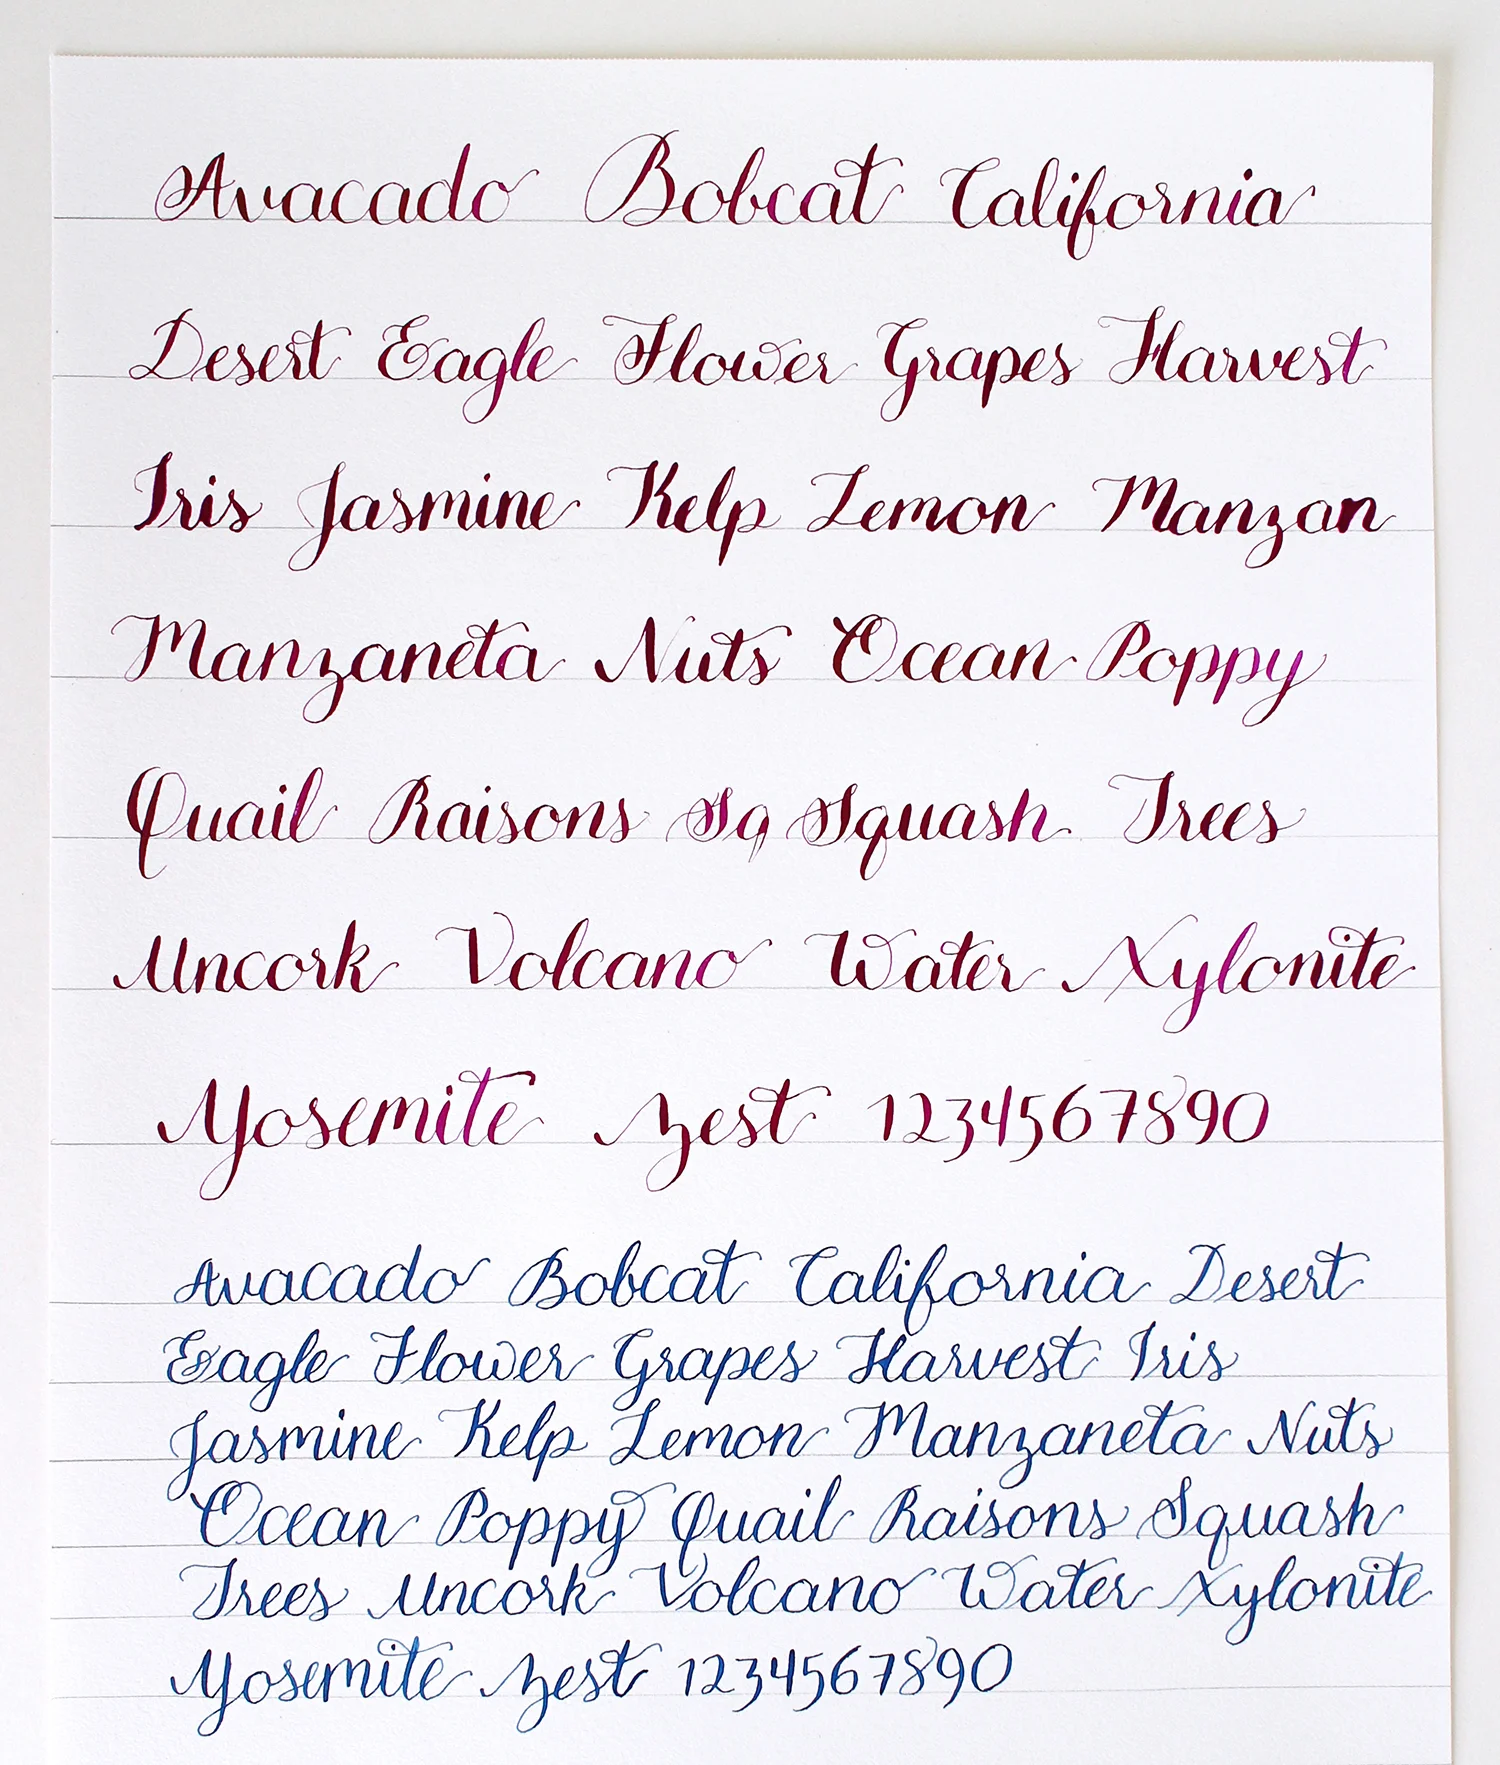 Avacado Bobcat California
Desert Eagle Flower Grapes Harvest
Iris Jasmine Kelp Lemon Manzan
Manzaneta Nuts Ocean Poppy
Quail Raisons Sq Squash Trees
Uncork Volcano Water Xylonite
Yosemite Zest 1234567890
Avacado Bobcat California Desert
Eagle Flower Grapes Harvest Iris
Jasmine Kelp Lemon Manzaneta Nuts
Ocean Poppy Quail Raisons Squash
Trees Uncork Volcano Water Xylonite
Yosemite Zest 1234567890